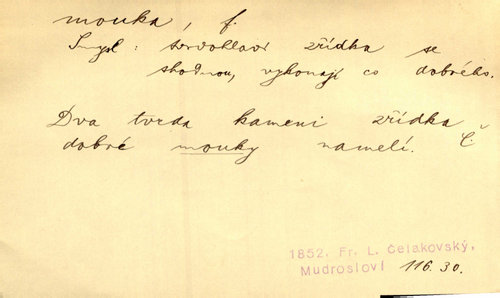 mouka, f.
Smysl: tvrdohlaví zřídka se
shodnou, vykonají co dobrého.
Dva tvrda kameni zřídka
dobré mouky namelí. Č.
1852. Fr. L. Čelakovský,
Mudrosloví 116.30.